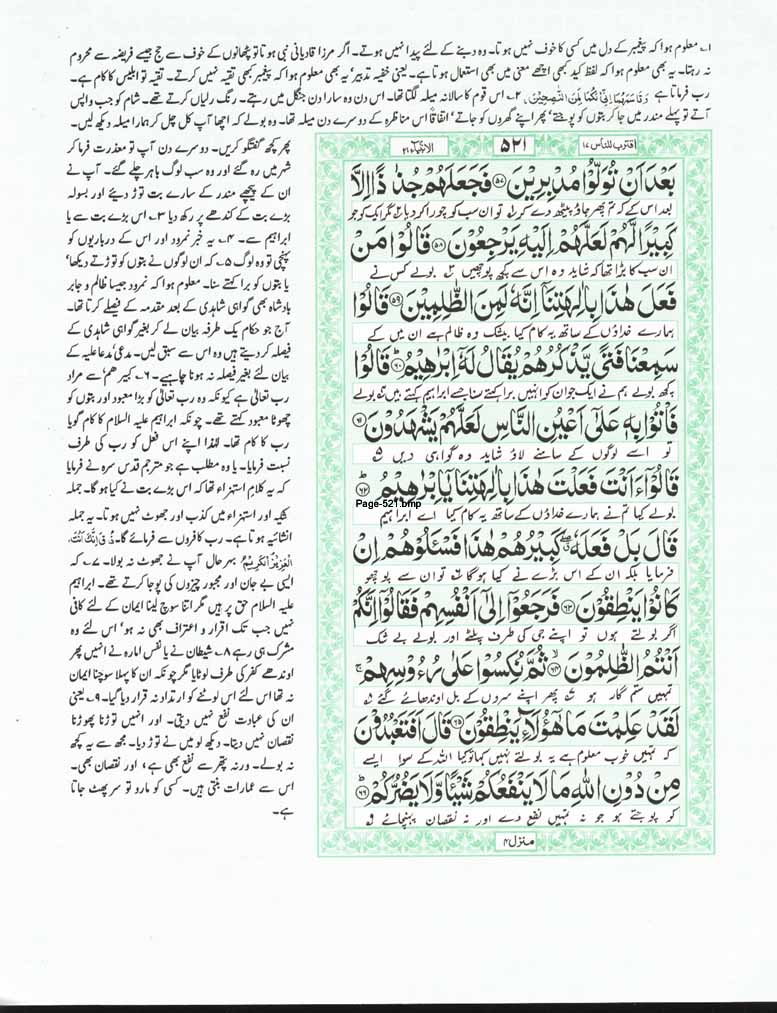 ۱۔ معلوم ہوا کہ پیغمبر کے دل میں کسی کا خوف نہیں ہوتا۔ وہ دبنے کے لئے پیدا نہیں ہوتے۔ اگر مرزا قادیانی نبی ہوتا تو پٹھانوں کے خوف سے حج جیسے فریضہ سے محروم
نہ رہتا۔ یہ بھی معلوم ہوا کہ لفظ کید بھی اچھے معنی میں بھی استعمال ہوتا ہے۔ یعنی خفیہ تدبیر' یہ بھی معلوم ہوا کہ پیغمبر کبھی تقیہ نہیں کرتے۔ تقیہ تو ابلیس کا کام ہے۔
رب فرماتا ہے وَقَاسَمَهُمَا اِنِّىْ لَكُمَا لَمِنَ النّٰصِحِيْنَ، ۲۔ اس قوم کا سالانہ میلہ لگتا تھا۔ اس دن وہ سارا دن جنگل میں رہتے۔ رنگ رلیاں کرتے تھے۔ شام کو جب واپس
آتے تو پہلے مندر میں جا کر بتوں کو پوجتے' پھر اپنے گھروں کو جاتے' اتفاقاً اس مناظرہ کے دوسرے دن میلہ تھا۔ وہ بولے کہ اچھا آپ کل چل کر ہمارا میلہ دیکھ لیں۔
اقترب للناس ۱۷
۵۲۱
الانبیاء ۲۱
بَعْدَ اَنْ تُوَلُّوْا مُدْبِرِيْنَ ﴿۵۷﴾ فَجَعَلَهُمْ جُذٰذًا اِلَّا
بعد اس کے کہ تم پھر جاؤ پیٹھ دے کر تو ان سب کو چورا کر دیا مگر ایک کو جو
كَبِيْرًا لَّهُمْ لَعَلَّهُمْ اِلَيْهِ يَرْجِعُوْنَ ﴿۵۸﴾ قَالُوْا مَنْ
ان سب کا بڑا تھا کہ شاید وہ اس سے کچھ پوچھیں بولے کس نے
فَعَلَ هٰذَا بِاٰلِهَتِنَاۤ اِنَّهٗ لَمِنَ الظّٰلِمِيْنَ ﴿۵۹﴾ قَالُوْا
ہمارے خداؤں کے ساتھ یہ کام کیا بیشک وہ ظالم ہے ان میں کے
سَمِعْنَا فَتًى يَّذْكُرُهُمْ يُقَالُ لَهٗۤ اِبْرٰهِيْمُ ﴿۶۰﴾ قَالُوْا
کچھ بولے ہم نے ایک جوان کو انہیں برا کہتے سنا جسے ابراہیم کہتے ہیں بولے
فَاْتُوْا بِهٖ عَلٰۤى اَعْيُنِ النَّاسِ لَعَلَّهُمْ يَشْهَدُوْنَ ﴿۶۱﴾
تو اسے لوگوں کے سامنے لاؤ شاید وہ گواہی دیں ۵
قَالُوْۤا ءَاَنْتَ فَعَلْتَ هٰذَا بِاٰلِهَتِنَا يٰۤاِبْرٰهِيْمُ ﴿۶۲﴾
Page-521.bmp
بولے کیا تم نے ہمارے خداؤں کے ساتھ یہ کام کیا اے ابراہیم
قَالَ بَلْ فَعَلَهٗ ۖ كَبِيْرُهُمْ هٰذَا فَسْـَٔلُوْهُمْ اِنْ
فرمایا بلکہ ان کے اس بڑے نے کیا ہوگا تو ان سے پوچھو
كَانُوْا يَنْطِقُوْنَ ﴿۶۳﴾ فَرَجَعُوْۤا اِلٰۤى اَنْفُسِهِمْ فَقَالُوْۤا اِنَّكُمْ
اگر بولتے ہوں تو اپنے جی کی طرف پلٹے اور بولے بے شک
اَنْتُمُ الظّٰلِمُوْنَ ﴿۶۴﴾ ثُمَّ نُكِسُوْا عَلٰى رُءُوْسِهِمْ
تمہیں ستم گار ہو پھر اپنے سروں کے بل اوندھائے گئے
لَقَدْ عَلِمْتَ مَا هٰۤؤُلَآءِ يَنْطِقُوْنَ ﴿۶۵﴾ قَالَ اَفَتَعْبُدُوْنَ
کہ تمہیں خوب معلوم ہے یہ بولتے نہیں کہا تو کیا اللہ کے سوا ایسے
مِنْ دُوْنِ اللّٰهِ مَا لَا يَنْفَعُكُمْ شَيْـًٔا وَّلَا يَضُرُّكُمْ ﴿۶۶﴾
کو پوجتے ہو جو نہ تمہیں نفع دے اور نہ نقصان پہنچائے
منزل ۴
پھر کچھ گفتگو کریں۔ دوسرے دن آپ تو معذرت فرما کر
شہر میں رہ گئے اور وہ سب لوگ باہر چلے گئے۔ آپ نے
ان کے پیچھے مندر کے سارے بت توڑ دیئے اور بسولہ
بڑے بت کے کندھے پر رکھ دیا ۳۔ اس بڑے بت سے یا
ابراہیم سے۔ ۴۔ یہ خبر نمرود اور اس کے درباریوں کو
پہنچی تو وہ لوگ ۵۔ کہ ان لوگوں نے بتوں کو توڑتے دیکھا'
یا بتوں کو برا کہتے سنا۔ معلوم ہوا کہ نمرود جیسا ظالم و جابر
بادشاہ بھی گواہی شاہدی کے بعد مقدمہ کے فیصلے کرتا تھا۔
آج جو حکام یک طرفہ بیان لے کر بغیر گواہی شاہدی کے
فیصلہ کر دیتے ہیں وہ اس سے سبق لیں۔ مدعی' مدعا علیہ کے
بیان لئے بغیر فیصلہ نہ ہونا چاہیے۔ ۶۔ کبیر ھم' سے مراد
رب تعالیٰ ہے کیونکہ وہ رب تعالیٰ کو بڑا معبود اور بتوں کو
چھوٹا معبود کہتے تھے۔ چونکہ ابراہیم علیہ السلام کا کام گویا
رب کا کام تھا۔ لہٰذا اپنے اس فعل کو رب کی طرف
نسبت فرمایا۔ یا وہ مطلب ہے جو مترجم قدس سرہ نے فرمایا
کہ یہ کلام استہزاء تھا کہ اس بڑے بت نے کیا ہوگا۔ جملہ
شکیہ اور استہزاء میں کذب اور جھوٹ نہیں ہوتا۔ یہ جملہ
انشائیہ ہوتا ہے۔ رب کافروں سے فرمائے گا۔ ذُقْ اِنَّكَ اَنْتَ
الْعَزِيْزُ الْكَرِيْمُ بہرحال آپ نے جھوٹ نہ بولا۔ ۷۔ کہ
ایسی بے جان اور مجبور چیزوں کی پوجا کرتے تھے۔ ابراہیم
علیہ السلام حق پر ہیں مگر اتنا سوچ لینا ایمان کے لئے کافی
نہیں جب تک اقرار و اعتراف بھی نہ ہو' اس لئے وہ
مشرک ہی رہے ۸۔ شیطان نے یا نفس امارہ نے انہیں پھر
اوندھے کفر کی طرف لوٹایا مگر چونکہ ان کا پہلا سوچنا ایمان
نہ تھا اس لئے اس لوٹنے کو ارتداد نہ قرار دیا گیا۔ ۹۔ یعنی
ان کی عبادت نفع نہیں دیتی۔ اور انہیں توڑنا پھوڑنا
نقصان نہیں دیتا۔ دیکھ لو میں نے توڑ دیا۔ مجھ سے یہ کچھ
نہ بولے۔ ورنہ پتھر سے نفع بھی ہے، اور نقصان بھی۔
اس سے عمارات بنتی ہیں۔ کسی کو مارو تو سر پھٹ جاتا
ہے۔